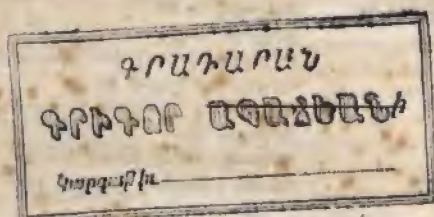 ԳՐԱԴԱՐԱՆ
ԳՐԻԳՈՐ ԱԳԱՃԵԱՆի
կարգաթիւ